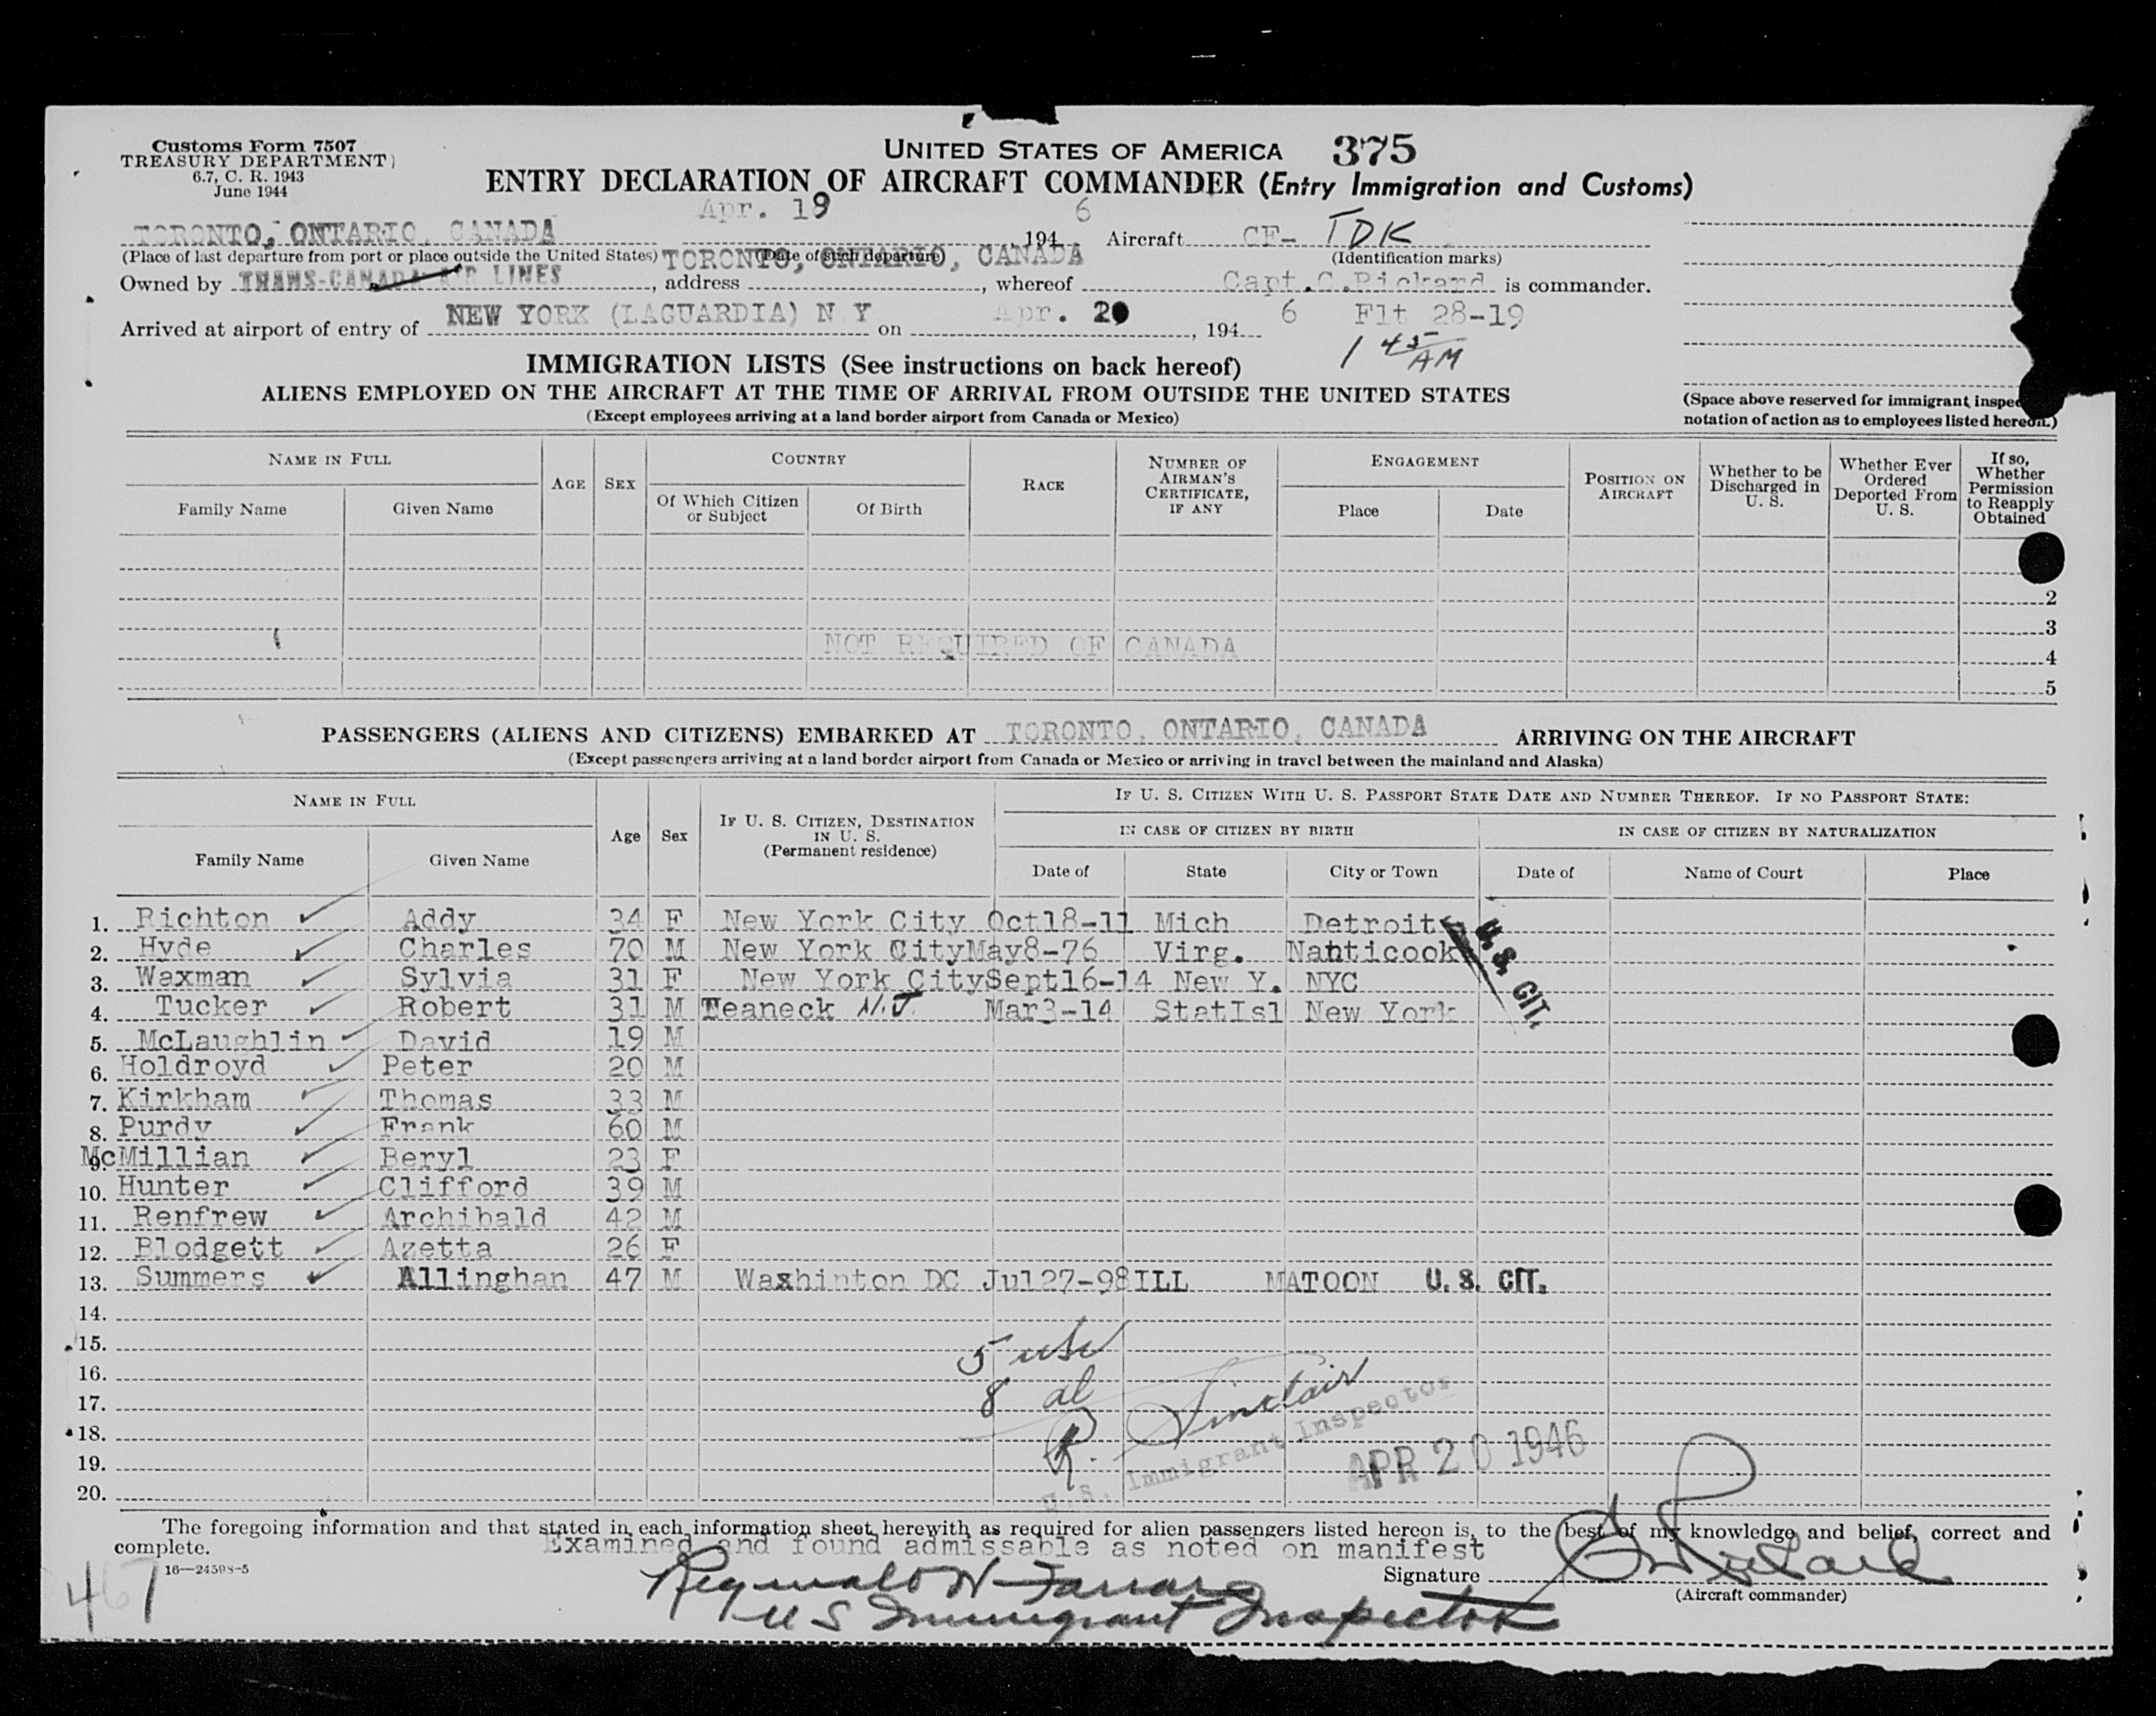 Customs Form 7507
TREASURY DEPARTMENT
6.7, C. R. 1943
June 1944
UNITED STATES OF AMERICA 375
ENTRY DECLARATION OF AIRCRAFT COMMANDER (Entry Immigration and Customs)
Apr. 19 6
TORONTO, ONTARIO, CANADA , 194 Aircraft CF- TDK
(Place of last departure from port or place outside the United States) (Date of such departure) (Identification marks)
TORONTO, ONTARIO, CANADA
Owned by TRANS-CANADA AIR LINES , address , whereof Capt. C. Pickard is commander.
Arrived at airport of entry of NEW YORK (LAGUARDIA) N Y on Apr. 20 , 194 6 Flt 28-19
1 45 AM
IMMIGRATION LISTS (See instructions on back hereof)
ALIENS EMPLOYED ON THE AIRCRAFT AT THE TIME OF ARRIVAL FROM OUTSIDE THE UNITED STATES
(Except employees arriving at a land border airport from Canada or Mexico)
(Space above reserved for immigrant inspec
notation of action as to employees listed hereon.)
NAME IN FULL AGE SEX COUNTRY RACE NUMBER OF AIRMAN'S CERTIFICATE, IF ANY ENGAGEMENT POSITION ON AIRCRAFT Whether to be Discharged in U. S. Whether Ever Ordered Deported From U. S. If so, Whether Permission to Reapply Obtained
Family Name Given Name Of Which Citizen or Subject Of Birth Place Date
2
3
NOT REQUIRED OF CANADA
4
5
PASSENGERS (ALIENS AND CITIZENS) EMBARKED AT TORONTO, ONTARIO, CANADA ARRIVING ON THE AIRCRAFT
(Except passengers arriving at a land border airport from Canada or Mexico or arriving in travel between the mainland and Alaska)
NAME IN FULL Age Sex IF U. S. CITIZEN, DESTINATION IN U. S. (Permanent residence) IF U. S. CITIZEN WITH U. S. PASSPORT STATE DATE AND NUMBER THEREOF. IF NO PASSPORT STATE:
IN CASE OF CITIZEN BY BIRTH IN CASE OF CITIZEN BY NATURALIZATION
Family Name Given Name Date of State City or Town Date of Name of Court Place
1. Richton Addy 34 F New York City Oct18-11 Mich Detroit
2. Hyde Charles 70 M New York City May8-76 Virg. Nanticook
3. Waxman Sylvia 31 F New York City Sept16-14 New Y. NYC
U. S. CIT.
4. Tucker Robert 31 M Teaneck N.J. Mar3-14 StatIsl New York
5. McLaughlin David 19 M
6. Holdroyd Peter 20 M
7. Kirkham Thomas 33 M
8. Purdy Frank 60 M
9. McMillian Beryl 23 F
10. Hunter Clifford 39 M
11. Renfrew Archibald 42 M
12. Blodgett Azetta 26 F
13. Summers Allinghan 47 M Waxhinton DC Jul27-98 ILL MATOON U. S. CIT.
14.
15.
5 usc
16.
8 al
17.
R. Sinclair
18.
U.S. Immigrant Inspector
19.
APR 20 1946
20.
The foregoing information and that stated in each information sheet herewith as required for alien passengers listed hereon is, to the best of my knowledge and belief, correct and
complete. Examined and found admissable as noted on manifest
16—24598-5
Signature
(Aircraft commander)
Reginald W Farrar
U S Immigrant Inspector
467